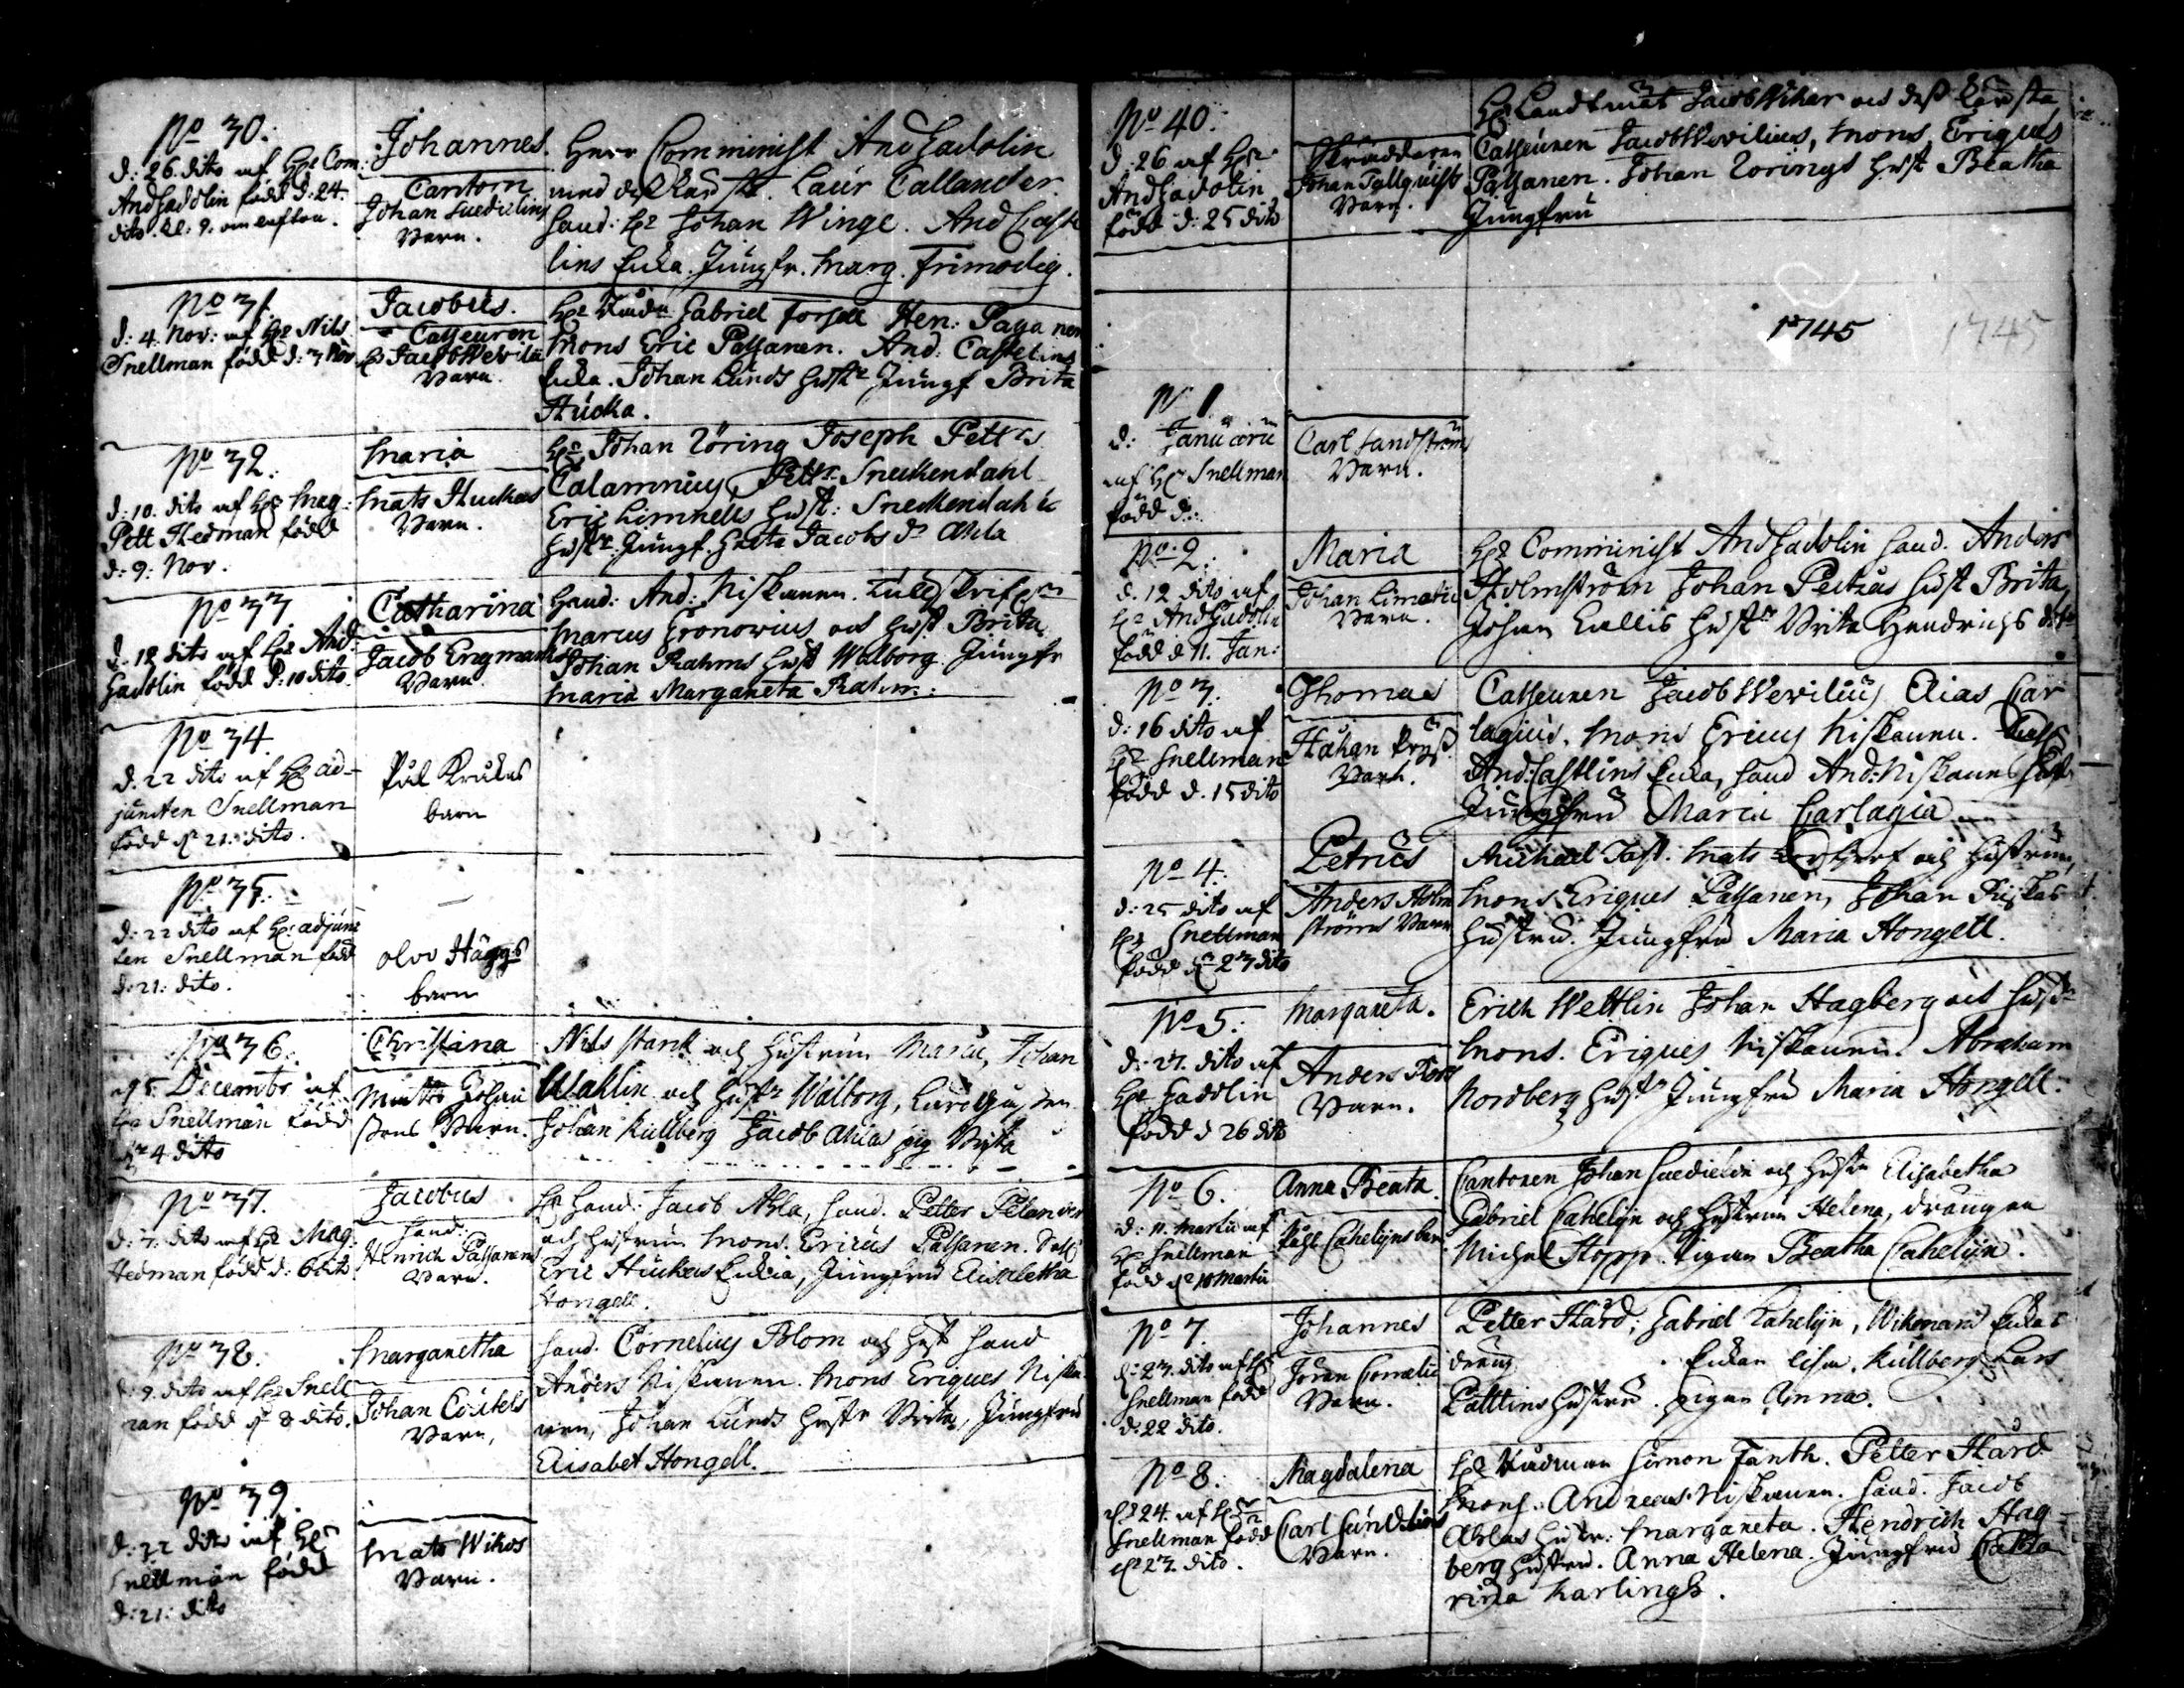 No 30.
d: 26 dito af Hr Com:
And Gadolin född d: 24.
dito. kl: 9. om afton.
Johannes.
Cantorn
Johan Suedelius
Barn.
Herr Comminist And Gadolin
med dess Laur Callander.
Hand: Hr Johan Winge. And Caste
lins Enka. Jungfr. Marg. Frimodig.
No 31.
d: 4. Nov: af Hr Nils
Snellman född d: 3 Nov
Jacobus.
Casseuren
Hr Jacob Weviliu
Barn.
Hr Gabriel Forssell Hen: Paganen
Mons Eric Passanen. And: Castelins
Enka. Johan Lunds Hustr Jungf Brita
Stucka.
No 32.
d: 10. dito af Hr Mag:
Pett Hedman född
d: 9: Nov.
Maria
Mats Stuckas
Barn.
Hr Johan Zöring Joseph Petters
Calamnius, Pettr Sneckendahl
Eric Limnells Hust: Sneckendahls
Hustr. Jungf. Jacobs dr Ahla
No 33
d. 12 dito af Hr And:
Gadolin född d: 10 dito.
Catharina
Jacob Engmans
Barn.
Hand: And: Niskanen.
Marcus Gronowius och Hust Brita
Johan Rahms Hust Walborg Jungfr
Maria Margareta Rahm:
No 34.
d. 22 dito af Hr ad-
juncten Snellman
född d 21: dito.
Pål Krukas
barn
No 35.
d: 22 dito af Hr: adjunc
ten Snellman född
d: 21: dito.
olov Häggs
barn
No 36.
d 5 Decembr af
Hr Snellman född
d 4 dito
Christina
Matts Johan
sons Barn.
Nils stark och Hustrun Maria, Johan
Wahlin och Hustr Walborg,
Johan Kullberg Jacob Ahlas pig Brita
No 37.
d: 7: dito af Hr Mag:
Hedman född d: 6 dito
Jacobus
Hand:
Henrich Passanens
Barn.
Hr Hand: Jacob Ahla, Hand. Petter Pelander
och Hustrun Mons. Ericus Passanen.
Eric Stuckas Enka, Jungfru Elisabetha
Hongell.
No 38.
d: 9. dito af Hr Snell
man född d 8 dito.
Margaretha
Johan Cöstels
Barn,
Hand. Cornelius Blom och Hust Hand
Anders Niskanen. Mons Eriques Niska
nen, Johan Lunds Hustr Brita, Jungfru
Elisabet Hongell.
No 39.
d: 22 dito af Hr
Snellman född
d: 21: dito
Mats Wikos
Barn.
No 40.
d: 26 af Hr
And Gadolin
född d: 25 dito
Skräddaren
Johan Tallquist
Barn.
Hr Jacob Wikar
Casseuren Jacob Wevilius, Mons. Eriques
Passanen. Johan Zorings Hust Beatha
Jungfru
1745
1745
N 1
d: Januarii
af Hr Snellman
född d:
Carl Sandströms
Barn.
No 2.
d. 12 dito af
Hr And Gadolin
född d 11. Jan:
Maria
Johan Limatii
Barn.
Hr Comminist And Gadolin Hand. Anders
Holmström Johan Peitzius Hust Brita,
Johan Hustr Brita Hendrichs dotr
No 3.
d: 16 dito af
Hr Snellman
född d. 15 dito
Thomas
Barn.
Casseuren Jacob Wevilius Elias Car
lagius. Mons Ericus Niskanen.
And: Castlins Enka, Hand And: Niskanens Hust
Jungfru Maria Carlagia
No 4.
d: 25 dito af
Hr Snellman
född d 23 dito
Petrus
Anders Holm
ströms Barn
Michael Tast. Mats och Hustrun,
Mons Eriques Passanen, Johan
Hustru. Jungfru Maria Hongell.
No 5.
d: 27. dito af
Hr Gadolin
född d 26 dito
Margareta.
Anders Fors
Barn.
Erich Wettlin Johan Hagberg och Hustr
Mons. Eriques Niskanen. Abraham
Nordberg Hustr Jungfru Maria Hongell.
No 6.
d: 11. Martii af
Hr Snellman
född d 10 Martii
Anna Beata.
Påhl Cahelijns barn
Cantoren Johan Suedelius och Hustru Elisabetha
Gabriel Cahelijn och Hustrun Helena, drängen
Michel Hopp. Pigan Beatha Cahelijn.
No 7.
d: 23. dito af Hr
Snellman född
d: 22 dito.
Johannes
Jöran Cornelii
Barn.
Petter Hård, Gabriel Cahelijn, Wikmans Enkas
dräng Enkan Lisa. Kullberg Lars
Pättlins Hustru. pigan Anna.
No 8.
d 24. af Hr
Snellman född
d 23. dito.
Magdalena
Carl Sundlins
Barn.
Hr Rådman Simon Fanth. Petter Hård
Mons. Andreas Niskanen. Hand. Jacob
Ahlas Hustr: Margareta. Hendrich Hag
berg Hustru. Anna Helena. Jungfru Catha
rina Karlings.